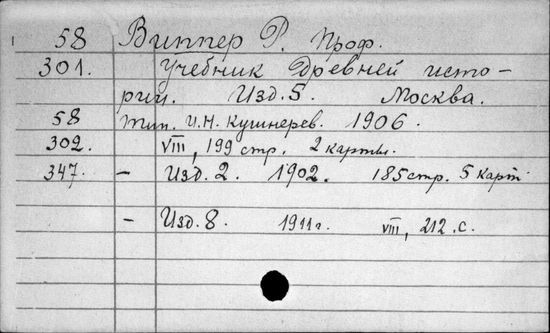 58 Виппер Р. Проф.
301. Учебник Древней исто-
рии. Изд. 5. Москва.
58 тип. И.Н. Кушнерев. 1906.
302. VIII, 199 стр. 2 карты.
347. — Изд. 2. 1902. 185 стр. 5 карт.
— Изд. 8. 1911 г. VIII, 212 . с.